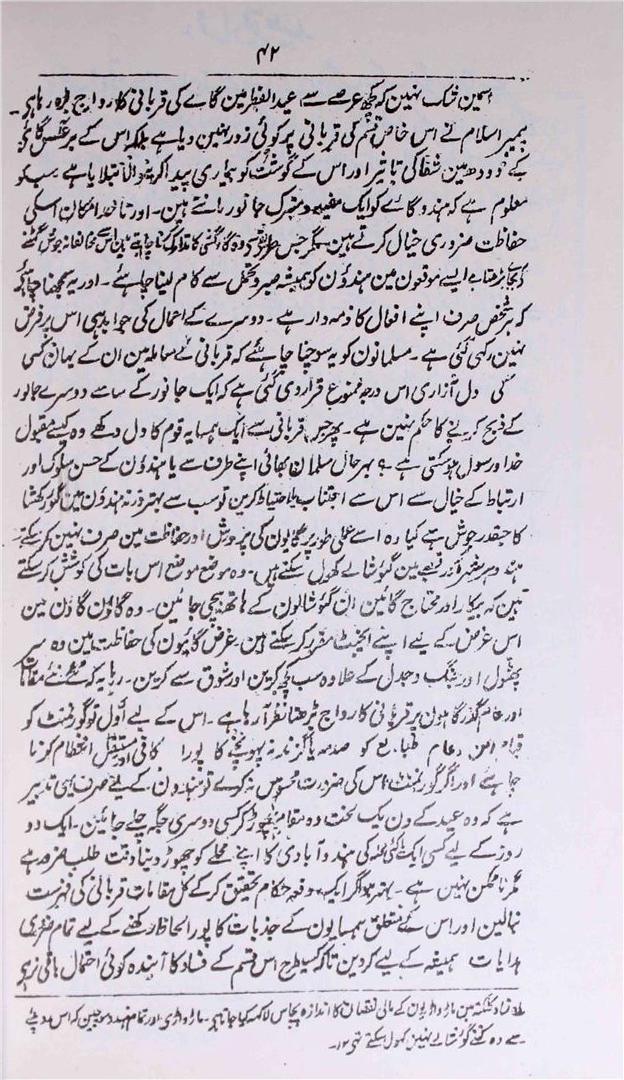 ۴۲
اسمین شک نہین کہ کچھ عرصے سے عیدالفطر مین گاے کی قربانی کا رواج بڑھ رہا ہی۔
پیمبر اسلام نے اس خاص قسم کی قربانی پر کوئی زور نہین دیا ہے بلکہ اس کے برعکس گائو
کے دودھ مین شفا کی تاثیر اور اس کے گوشت کو بیماری پیدا کرنے والا بتلایا ہے سب کو
معلوم ہے کہ ہندو گاے کو ایک مفید و متبرک جانور مانتے ہین۔ اور تا حد امکان اسکی
حفاظت ضروری خیال کرتے ہین مگر جس طریقہ سے وہ گاؤکشی کا تدارک کرنا چاہتے ہین اس سے مخالفانہ جوش گھٹنے
کے بجاے بڑھتا ہے ایسے موقعون مین ہندؤن کو ہمیشہ صبر و تحمل سے کام لینا چاہئے۔ اور یہ سمجھنا چاہئے
کہ ہر شخص صرف اپنے افعال کا ذمہ دار ہے۔ دوسرے کے اعمال کی جوابدہی اس پر فرض
نہین رکھی گئی ہے۔ مسلمانون کو یہ سوچنا چاہئے کہ قربانی کے معاملہ مین ان کے یہان کسی
کی دل آزاری اس درجہ ممنوع قرار دی گئی ہے کہ ایک جانور کے سامنے دوسرے جانور
کے ذبح کرنے کا حکم نہین ہے۔ پھر جس قربانی سے ایک ہمسایہ قوم کا دل دکھے وہ کیسے مقبول
خدا و رسول ہو سکتی ہے؟ بہرحال مسلمان بھائی اپنے طرف سے یا ہندؤن کے حسن سلوک اور
ارتباط کے خیال سے اس سے اجتناب یا احتیاط کرین تو سب سے بہتر ورنہ ہندؤن مین گؤرکھشا
کا جسقدر جوش ہے کیا وہ اسے عملی طور پر گایون کی پرورش اور حفاظت مین صرف نہین کر سکتے
وہ ہر شہر اور قصبے مین گئوشالے کھول سکتے ہین۔ وہ موضع موضع اس بات کی کوشش کر سکتے
ہین کہ بیکار اور محتاج گائین ان گئوشالون کے ہاتھ بیچی جائین۔ وہ گاؤن گاؤن مین
اس غرض کے لیے اپنے ایجنٹ مقرر کر سکتے ہین۔ غرض گایون کی حفاظت مین وہ سر
پھٹول اور جنگ و جدل کے علاوہ سب کچھ کرین اور شوق سے کرین۔ رہا یہ کہ نئے نئے مقامات
اور عام گذرگاہون پر قربانی کا رواج بڑھتا نظر آ رہا ہے۔ اس کے لیے اول تو گورنمنٹ کو
قیام امن و عام طبایع کو صدمہ یا گزند نہ پہونچنے کا پورا کافی اور مستقل انتظام کرنا
چاہئے اور اگر گورنمنٹ اس کی ضرورت محسوس نہ کرے تو ہندون کے لیے صرف یہی تدبیر
ہے کہ وہ عید کے دن یک لخت وہ مقام چھوڑ کر کسی دوسری جگہ چلے جائین۔ ایک دو
روز کے لیے کسی ایک محلہ کی ہندو آبادی کا اپنے محلے کو چھوڑ دینا وقت طلب ضرور ہے
مگر ناممکن نہین ہے۔ بہتر ہو اگر ایک دفعہ حکام تحقیق کر کے کل مقامات قربانی کی فہرست
بنالین اور اس کے متعلق ہمسایون کے جذبات کا پورا لحاظ رکھنے کے لیے تمام ضروری
ہدایات ہمیشہ کے لیے کر دین تاکہ کسی طرح اس قسم کے فساد کا آیندہ کوئی احتمال باقی نہ رہے
فساد کلکتہ مین مارواڑیون کے مالی نقصان کا اندازہ پچاس لاکھ کیا جاتا ہے۔ مارواڑی اور تمام ہندو سوچین کہ اس روپئے
سے وہ کتنے گؤشالے نہین کھول سکتے تھے ۱۲۔